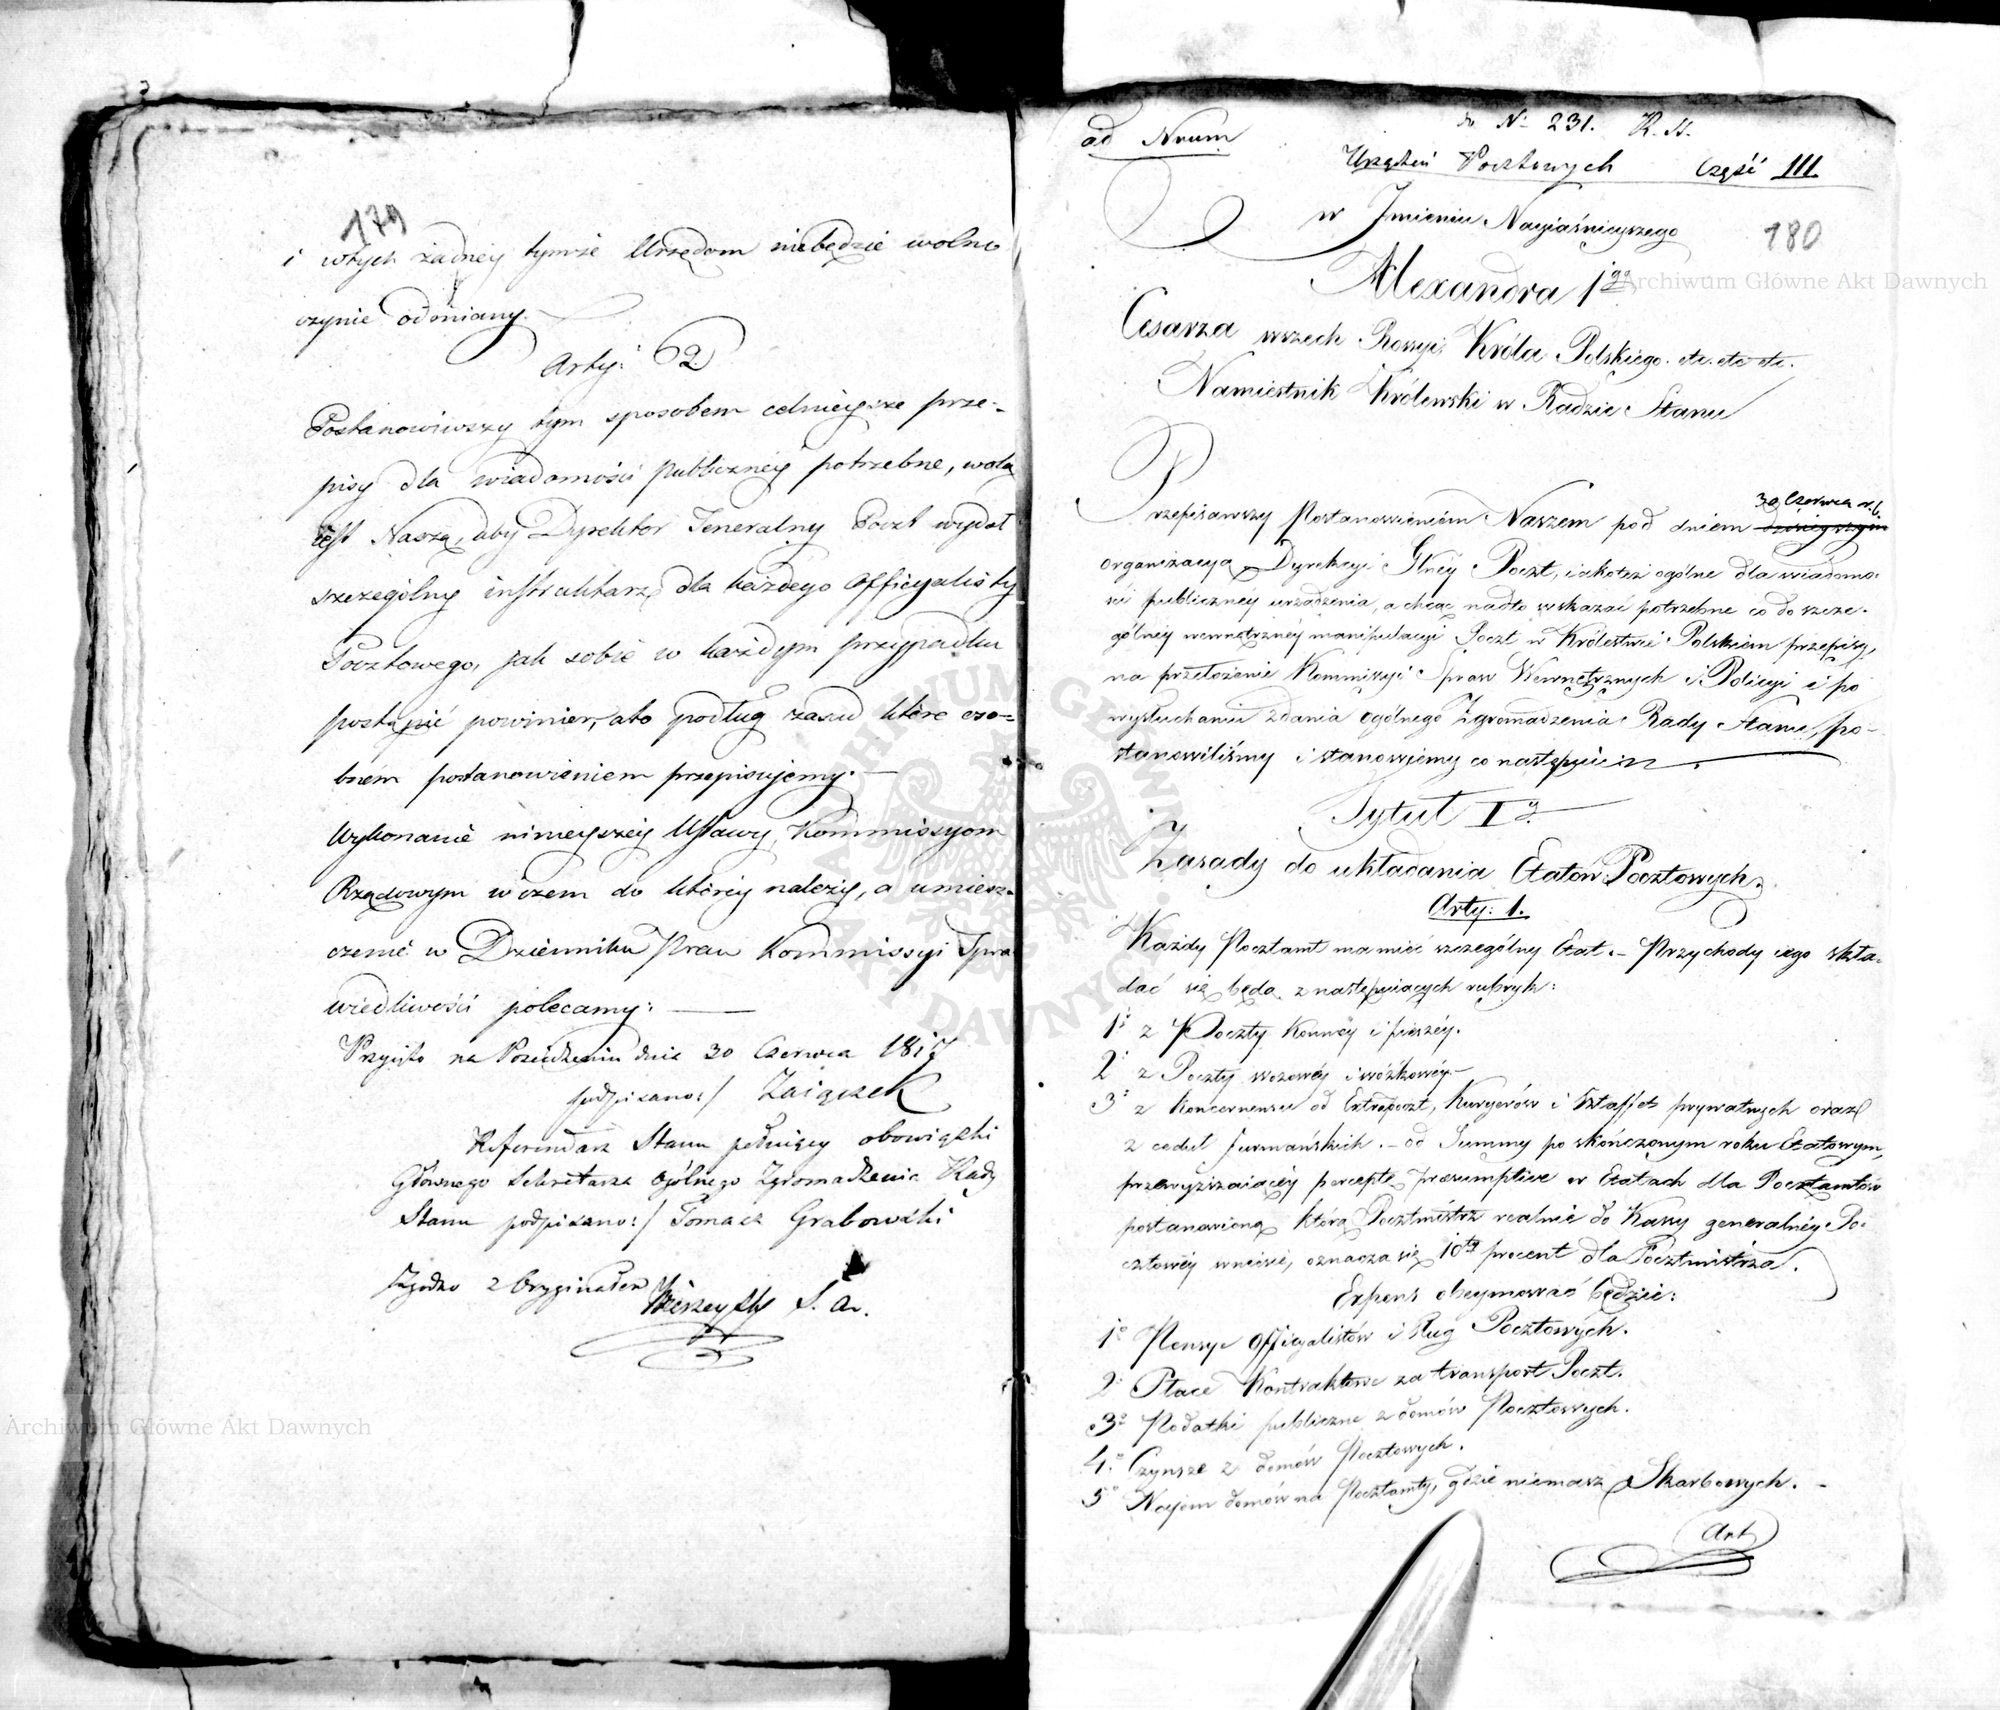 179
i wtych żadney tymże Urzędom niebędzie wolno
czynić odmiany.
Arty: 62
Postanowiwszy tym sposobem celnieysze prze-
pisy dla wiadomości publiczney potrzebne, wolą
iest Naszą, aby Dyrektor Jeneralny Poczt wydał
szczególny instruktarz dla każdego Officyalisty
Pocztowego, jak sobie w każdym przypadku
postąpić powinien, a to podług zasad które oso-
bnem postanowieniem przepisujemy. —
Wykonanie ninieyszey Ustawy, Kommissyom
Rządowym w czem do którey należy, a umiesz-
czenie w Dzienniku Praw Kommissyi Spra-
wiedliwości polecamy: —
Przyięto na Posiedzeniu dnia 30 Czerwca 1817
podpisano:/ Zaiączek
Referendarz Stanu pełniący obowiązki
Głównego Sekretarza Ogólnego Zgromadzenia Rady
Stanu podpisano:/ Tomasz Grabowski
Zgodno z Oryginałem
S. A.
ad Nrum
do N. 231. R. S.
Urządzeń Pocztowych Część III.
180
w Jmieniu Nayiaśnieyszego
Alexandra Igo
Cesarza wszech Rossyi, Króla Polskiego. etc. etc. etc.
Namiestnik Królewski w Radzie Stanu
30 Czerwca r. b.
Przepisawszy Postanowieniem Naszem pod dniem dzisieyszym
organizacyą Dyrekcyi Glney Poczt, iakoteż ogólne dla wiadomo-
ści publiczney urządzenia, a chcąc nadto wskazać potrzebne co do szcze-
gólney wewnętrzney manipulacyi Poczt w Królestwie Polskiem przepisy,
na przełożenie Kommissyi Spraw Wewnętrznych i Policyi i po
wysłuchaniu zdania ogólnego Zgromadzenia Rady Stanu, po-
stanowiliśmy i stanowiemy co następuie
Tytuł Iy
Zasady do układania Etatów Pocztowych.
Arty: 1.
Każdy Pocztamt ma mieć szczególny Etat. — Przychody iego skła-
dać się będą z następuiących rubryk:
1o z Poczty Konney i pieszey.
2o z Poczty wozowey i wózkowey —
3o z Koncernensu od Extrapoczt, Kuryerów i Sztafet prywatnych oraz
z cedul furmańskich. — od Summy po skończonym roku Etatowym,
przewyższaiącey perceptę praesumptive w Etatach dla Pocztamtów
postanowioną którą Pocztmistrz realnie do Kassy generalney Po-
cztowey wniesie, oznacza się 10ty procent dla Pocztmistrza.
Expens obeymować będzie:
1o Pensye Officyalistów i sług Pocztowych.
2o Płace Kontraktowe za transport Poczt.
3o Podatki publiczne z domów Pocztowych.
4o Czynsze z domów Pocztowych.
5o Najem domów na Pocztamty, gdzie niemasz Skarbowych. —
Art
Archiwum Główne Akt Dawnych
Archiwum Główne Akt Dawnych
ARCHIWUM GŁÓWNE AKT DAWNYCH